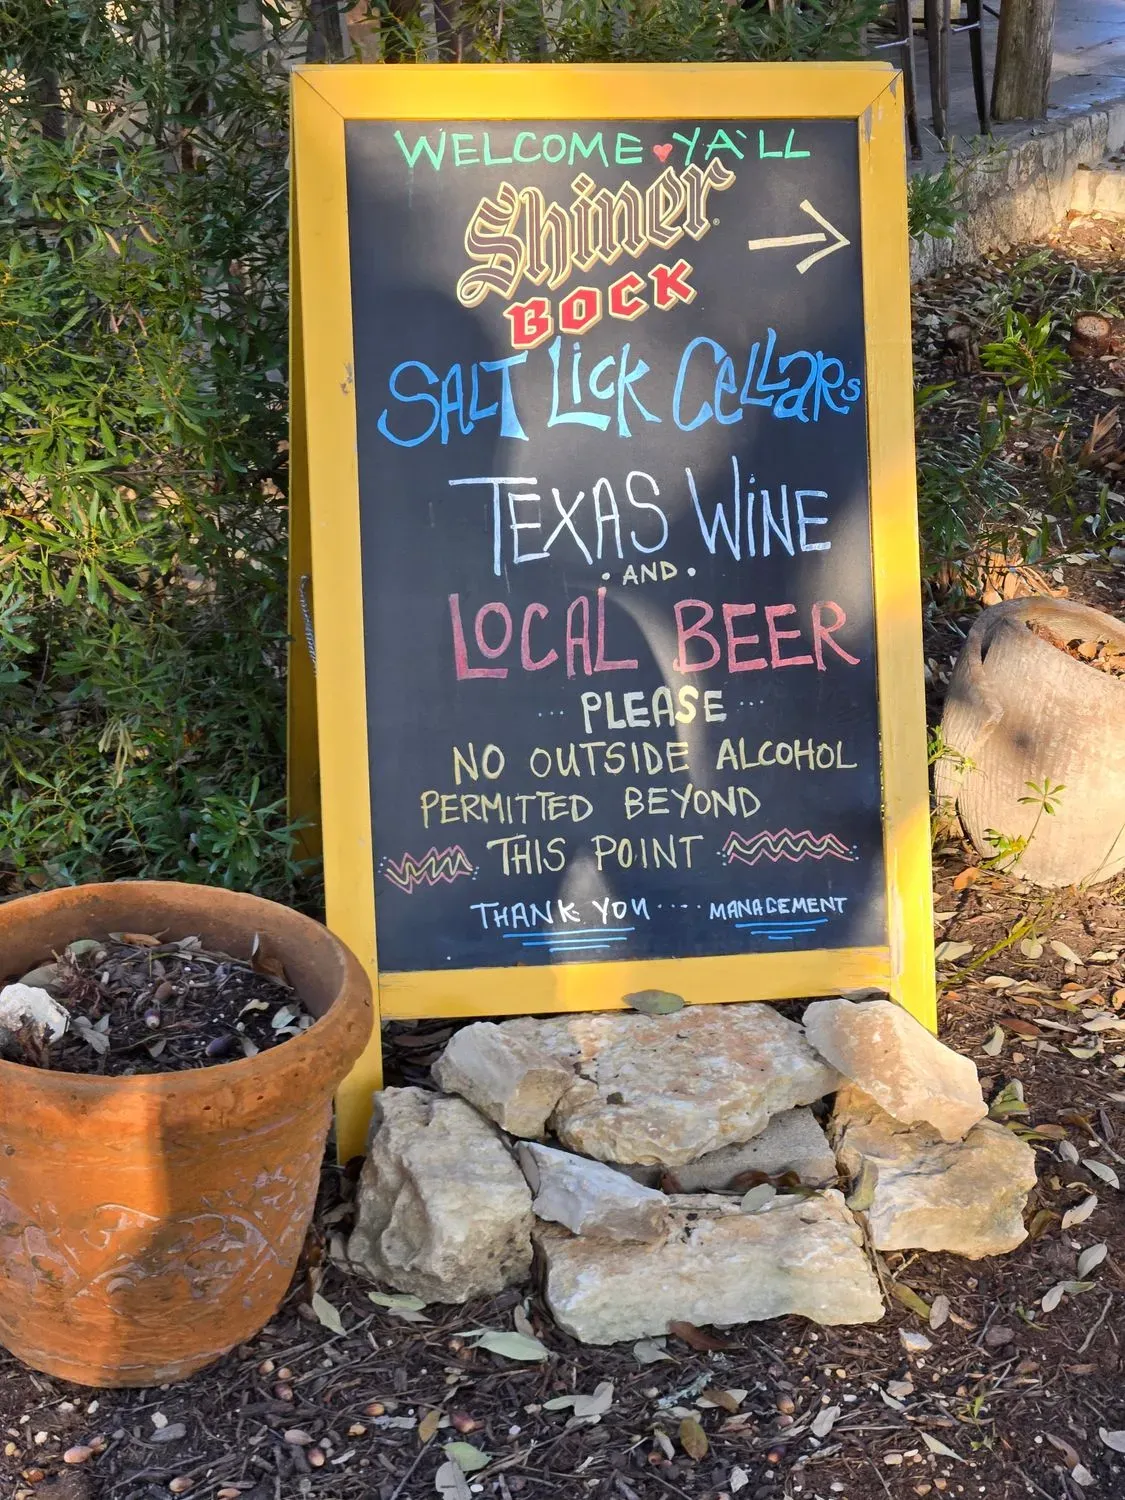 WELCOME ♥ YA'LL
Shiner®
BOCK
SALT LICK CELLARS
TEXAS WINE
• AND •
LOCAL BEER
... PLEASE ...
NO OUTSIDE ALCOHOL
PERMITTED BEYOND
THIS POINT
THANK YOU .... MANAGEMENT